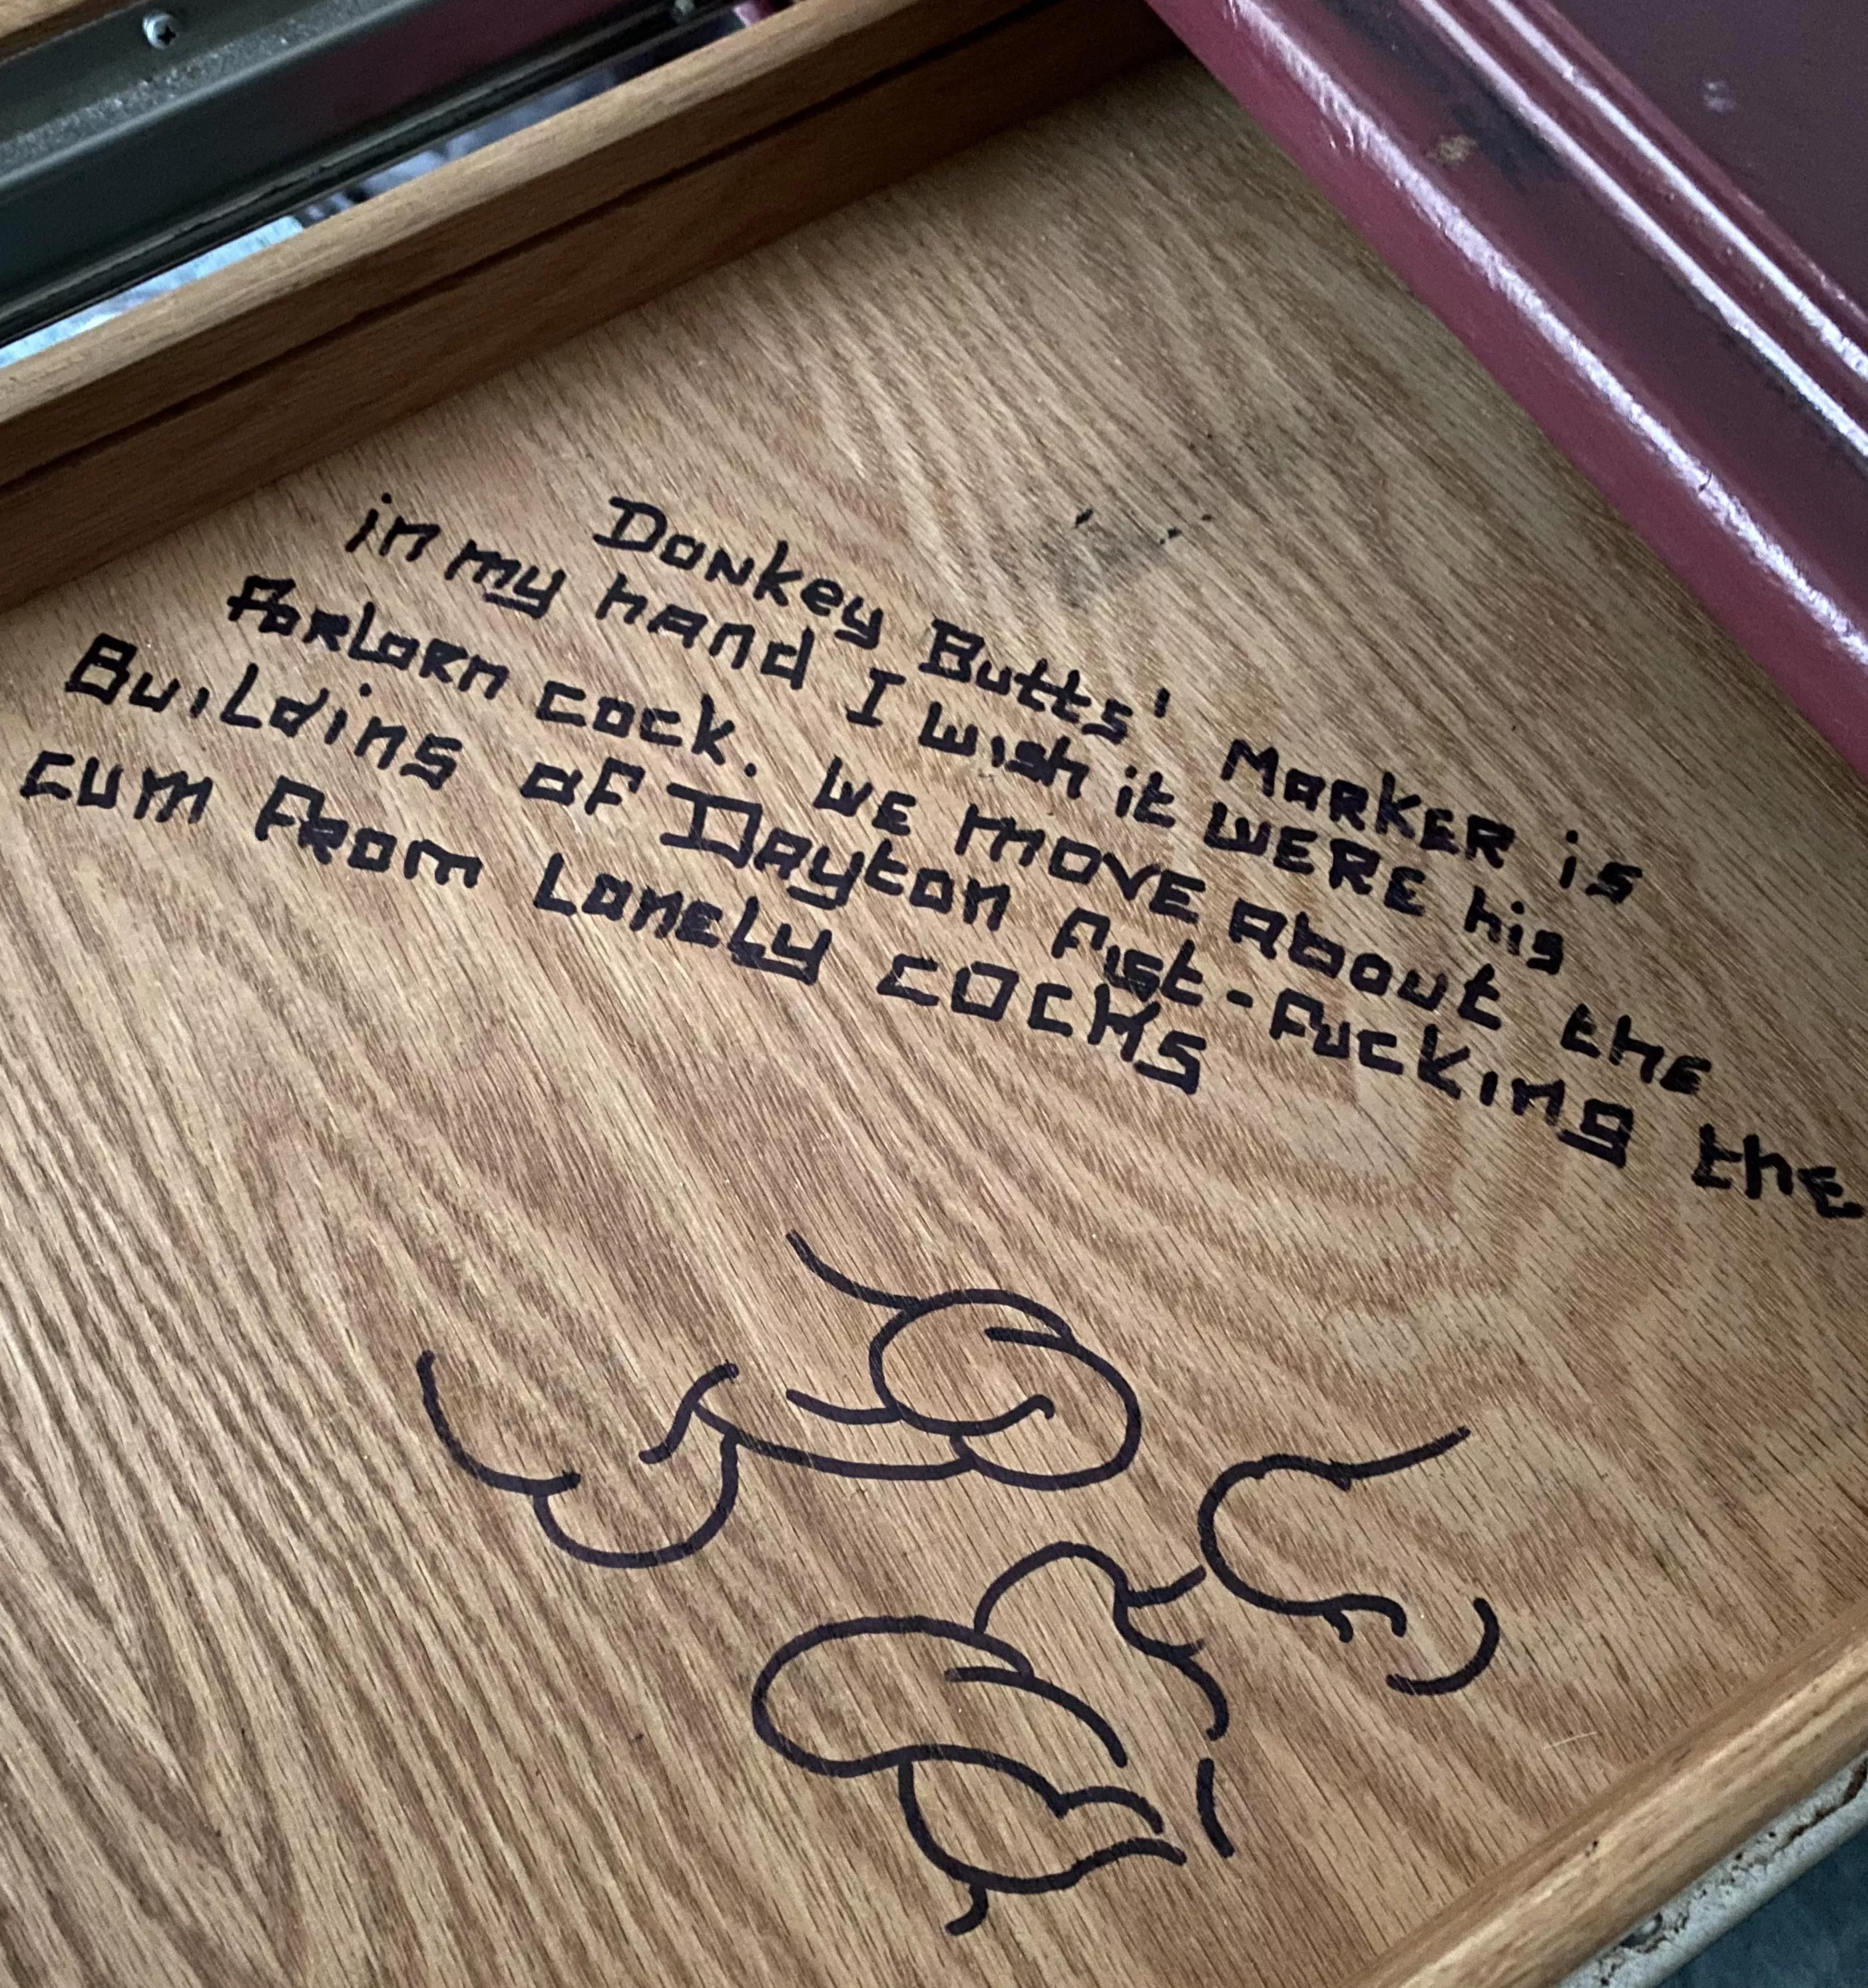 Donkey Butts' Marker is
in my hand I wish it were his
Forlorn cock. We move about the
Buildins of Dayton fist-fucking the
cum from Lonely cocks